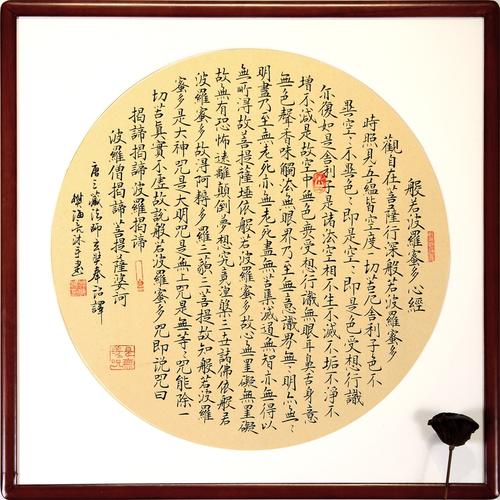 般若波羅蜜多心經
觀自在菩薩行深般若波羅蜜多
時照見五蘊皆空度一切苦厄舍利子色不
異空々不異色々即是空々即是色受想行識
亦復如是舍利子是諸法空相不生不滅不垢不淨不
增不減是故空中無色無受想行識無眼耳鼻舌身意
無色聲香味觸法無眼界乃至無意識界無々明亦無々
明盡乃至無老死亦無老死盡無苦集滅道無智亦無得以
無所得故菩提薩埵依般若波羅蜜多故心無罣礙無罣礙
故無有恐怖遠離顛倒夢想究竟涅槃三世諸佛依般若
波羅蜜多故得阿耨多羅三藐三菩提故知般若波羅
蜜多是大神咒是大明咒是無上咒是無等々咒能除一
切苦真實不虛故說般若波羅蜜多咒即說咒曰
揭諦揭諦波羅揭諦
波羅僧揭諦菩提薩婆訶
唐三藏法師玄奘奉詔譯
沐手書